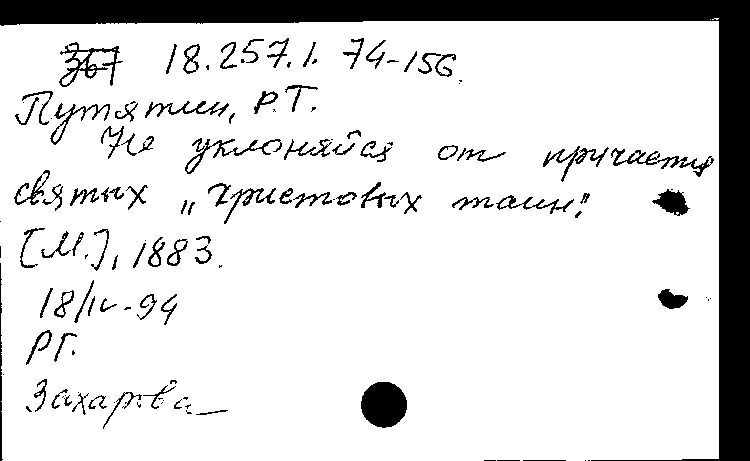 367 18.257.1. 74-156.
Путятин, Р.Т.
Не уклоняйся от причастия
святых „христовых таин".
[М.], 1883.
18/IV-94
РГ.
Захарова